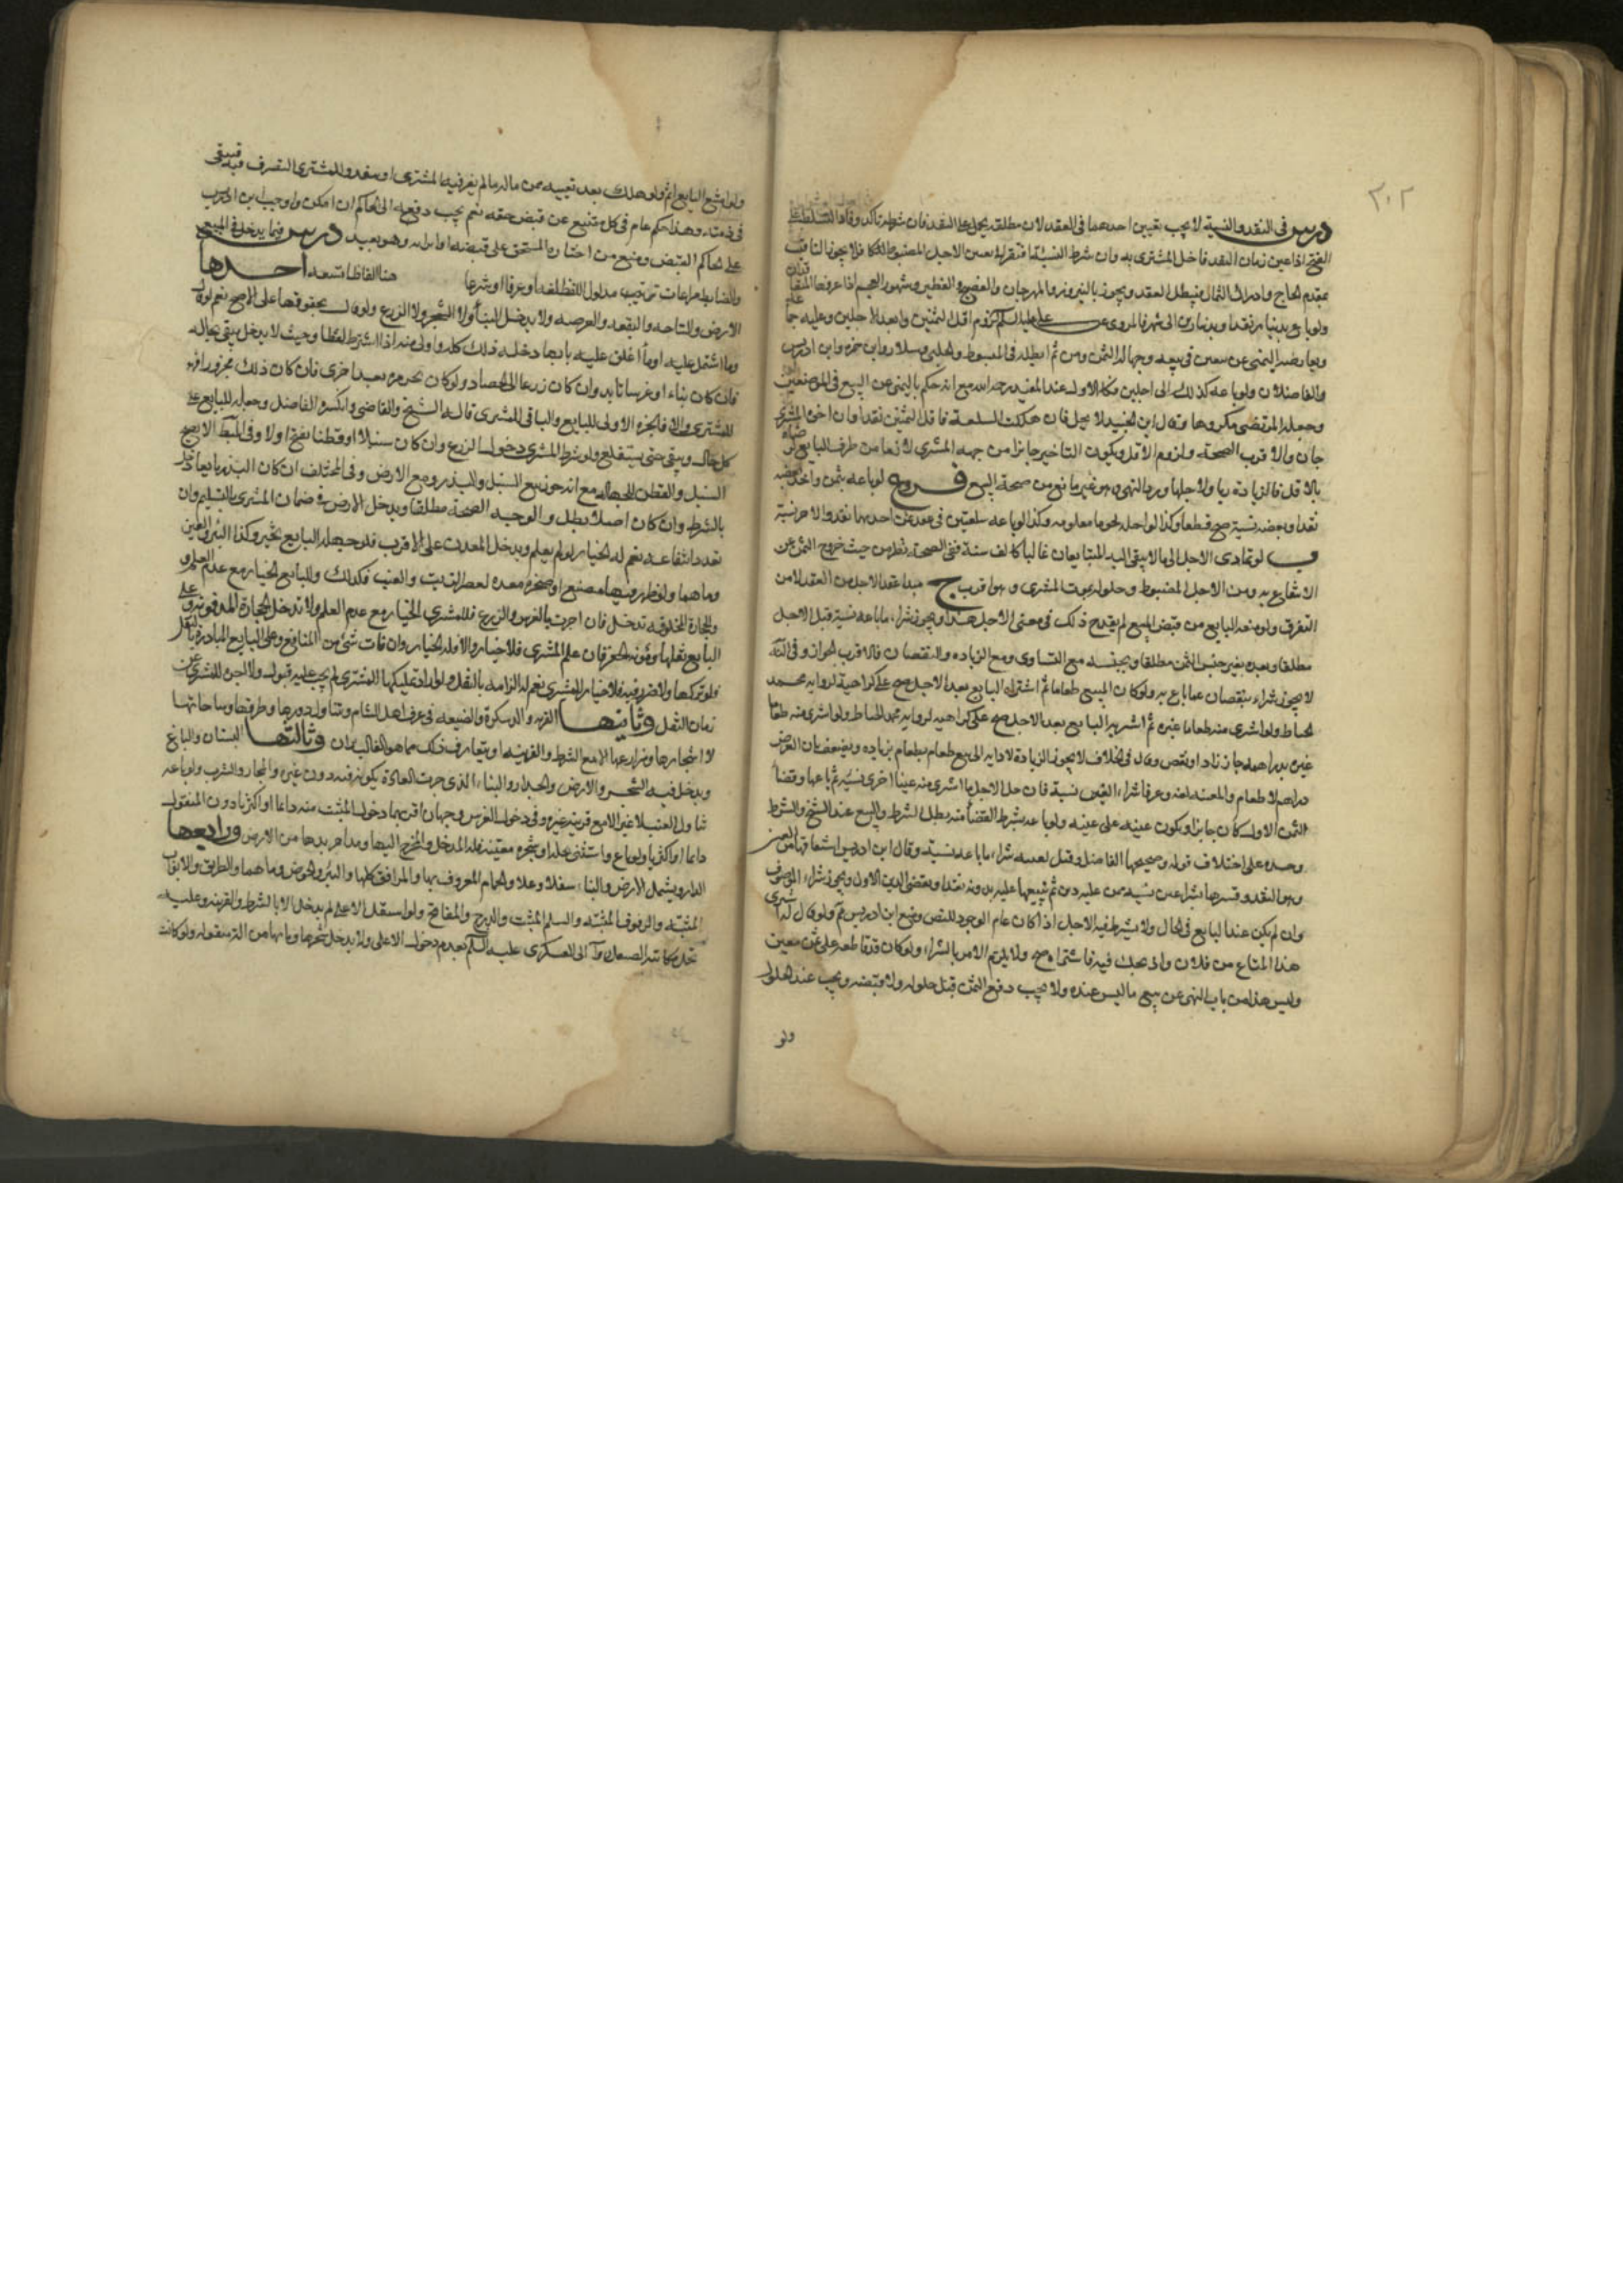 ٣٠٢
درس في النقد والنسية لا يجب تعيين احدهما في العقد لان مطلقه يحمل على النقد فان شرطه تاكد وفاد التسلط على
الفسخ اذا عين زمان النقد فاخل المشتري به وان شرط النسية تعين الاجل المضبوط فلا يجوز
بمقدم الحاج وادراك الثمار فيبطل العقد ويجوز بالنيروز والمهرجان والفصح والفطير وشهور العجم اذا عرفها
ولو باع بدينار نقدا وبدينارين الى شهر فالمروي عن علي عليه السلام لزوم اقل الثمنين وابعد الاجلين وعليه
ويعارضه النهي عن بيعين في بيعه وجهالة الثمن ومن ثم ابطله في المبسوط والحلبي وسلار وابن حمزه وابن ادريس
والفاضلان ولو باعه كذلك الى اجلين فكالاول عند المفيد رحمه الله مع انه حكم بالنهي عن البيع في الموضعين
وجعله المرتضى مكروها وقال ابن الجنيد لا يحل فان هلكت السلعة فاقل الثمنين نقدا وان اخره المشتري
جاز والاقرب الصحة ولزوم الاقل ويكون التاخير جائزا من جهه المشتري لازما من طرف البايع لرضاه
بالاقل فالزيادة ربا ولاجلها ورد النهي وهو غير مانع من صحة البيع فروع لو باعه بثمن واحد بعضه
نقدا وبعضه نسية صح قطعا وكذا لو اجله نجوما معلومه وكذا لو باعه سلعتين في عقد ثمن احديهما نقد والاخر نسية
ب لو تمادى الاجل الى ما لا يبقى اليه المتبايعان غالبا كالف سنة ففي الصحة نظر من حيث خروج الثمن عن
الانتفاع به ومن الاجل المضبوط وحلوله بموت المشتري وهو اقرب ج مبدا عقد الاجل من العقد لا من
التفرق ولو منعه البايع من قبض المبيع لم يقدح ذلك في معنى الاجل ويجوز شراء ما باعه نسية قبل الاجل
مطلقا وبعده بغير جنس الثمن مطلقا وبجنسه مع التساوي ومع الزياده والنقصان فالاقرب الجواز وفي النهاية
لا يجوز شراؤه بنقصان عما باع به ولو كان المبيع طعاما ثم اشتراه البايع بعد الاجل صح على كراهية لرواية محمد
الحناط ولو اشترى منه طعاما غيره
غيره بدراهمه جاز زاد او نقص وقال في الخلاف لا يجوز الزيادة لادائه الى بيع طعام بطعام بزياده ويضعف بان العوض
دراهم لا طعام والعينة لغة وعرفا شراء العين نسية فان حل الاجل فاشترى منه عينا اخرى نسية ثم باعها وقضاه
الثمن الاول كان جايزا ويكون عينه على عينه ولو باعه بشرط القضا منه بطل الشرط والبيع عند الشيخ والشرط
وحده على اختلاف قوله وصححها الفاضل وقيل العينه شراء ما باعه نسية وقال ابن ادريس اشتقاقها من العين
وهو النقد وفسرها بشراء عين نسيه ممن عليه دين ثم يبيعها عليه بدونه نقدا ويقضي الدين الاول ويجوز شراء الموصوف
وان لم يكن عند البايع في الحال ولا يشترط فيه الاجل اذا كان عام الوجود للنص ومنع ابن ادريس ولو قال له اشتري
هذا المتاع من فلان وانا اربحك فيه فاشتراه صح ولا يلزم الامر بالشراء ولو كان قد قاطعه على ثمن معين
وليس هذا من باب النهي عن بيع ما ليس عنده ولا يجب دفع الثمن قبل حلوله ولا قبضه ويجب عند الحلول
ولو
ولو امتنع البايع اثم ولو هلك بعد تعيينه من ماله ما لم يفرط فيه المشتري او منعه والمشتري التصرف فيه فيبقى
في ذمته وهذا الحكم عام في كل ممتنع عن قبض حقه نعم يجب دفعه الى الحاكم ان امكن واوجب ابن ادريس
على الحاكم القبض ومنع من اجباره المستحق على قبضه او ابرائه وهو بعيد درس فيما يدخل في المبيع
والضابط مراعات ترتيب مدلول اللفظ لغة او عرفا او شرعا هنا الفاظ تسعه احدها
الارض والساحه والبقعه والعرصه ولا يدخل البناء ولا الشجر ولا الزرع ولو قال بحقوقها على الاصح نعم لو قال
وما اشتمل عليه او ما اغلق عليه بابها دخل ذلك كله اذا اشترط لفظا وحيث لا يدخل يبقى بحاله
فان كان بناء او غرسا تابد وان كان زرعا الى الحصاد ولو كان يجز مره بعد اخرى فان كان ذلك مجزورا فهو
للمشتري والا فالجزه الاولى للبايع والباقي للمشتري قاله الشيخ والقاضي وانكره الفاضل وجعله للبايع على
كل حال ويبقى حتى يستقلع ولو شرط المشتري دخول الزرع وان كان سنبلا او قطنا تفتح او لا وفي المبسوط لا يصح
السنبل والقطن للجهالة مع انه جوز بيع السنبل والبذر مع الارض وفي المختلف ان كان البذر تابعا دخل
بالشرط وان كان اصلا بطل والوجه الصحة مطلقا ويدخل الارض في ضمان المشتري بالتسليم وان
تعذر انتفاعه نعم له الخيار لو لم يعلم ويدخل المعدن على الاقرب فلو جهله البايع تخير وكذا البئر والعين
وماهما ولو ظهر فيها مصنع او صخرة معده لعصر الزيت والعنب فكذلك وللبايع الخيار مع عدم العلم
والحجارة المخلوقه تدخل فان اضرت بالغرس والزرع فللمشتري الخيار مع عدم العلم ولا تدخل الحجارة المدفونه وعلى
البايع نقلها ومؤنه الحفر فان علم المشتري فلا خيار والا فله الخيار وان فات شيء من المنافع وعلى البايع المبادرة بالنقل
فلو تركها ولا ضرر فيه فلا خيار للمشتري نعم له الزامه بالنقل ولو اراد تمليكها المشتري لم يجب عليه قبوله ولا اجره للمشتري عن
زمان النقل وثانيها القريه والدسكرة والضيعه في عرف اهل الشام وتتناول دورها وطرقها وساحاتها
لا اشجارها ومزارعها الا مع الشرط والقرينه او يتعارف ذلك كما هو الغالب الان وثالثها البستان والباغ
ويدخل فيه الشجر والارض والجدار والبناء الذي جرت العادة بكونه فيه دون غيره والمجاز والشرب ولو باعه
تناول العنب لا غير الا مع قرينه غيره وفي دخول الغرس وجهان اقربهما دخول المثبت منه دايما او اكثريا دون المنقول
دايما او اكثريا ولو باع واستثنى نخله او شجره معينة فله المدخل والمخرج اليها ومدا جريدها من الارض ورابعها
الدار ويشمل الارض والبناء سفلا وعلوا والحمام المعروف بها والمرافق كلها والبئر والحوض وماهما والطريق والابواب
المثبته والرفوف المثبته والسلم المثبت والدرج والمفاتيح ولو استقل الاعلى لم يدخل الا بالشرط والقرينه وعليه
تحمل مكاتبه الصفار الى العسكري عليه السلام بعدم دخول الاعلى ولا يدخل شجرها ولو كانت